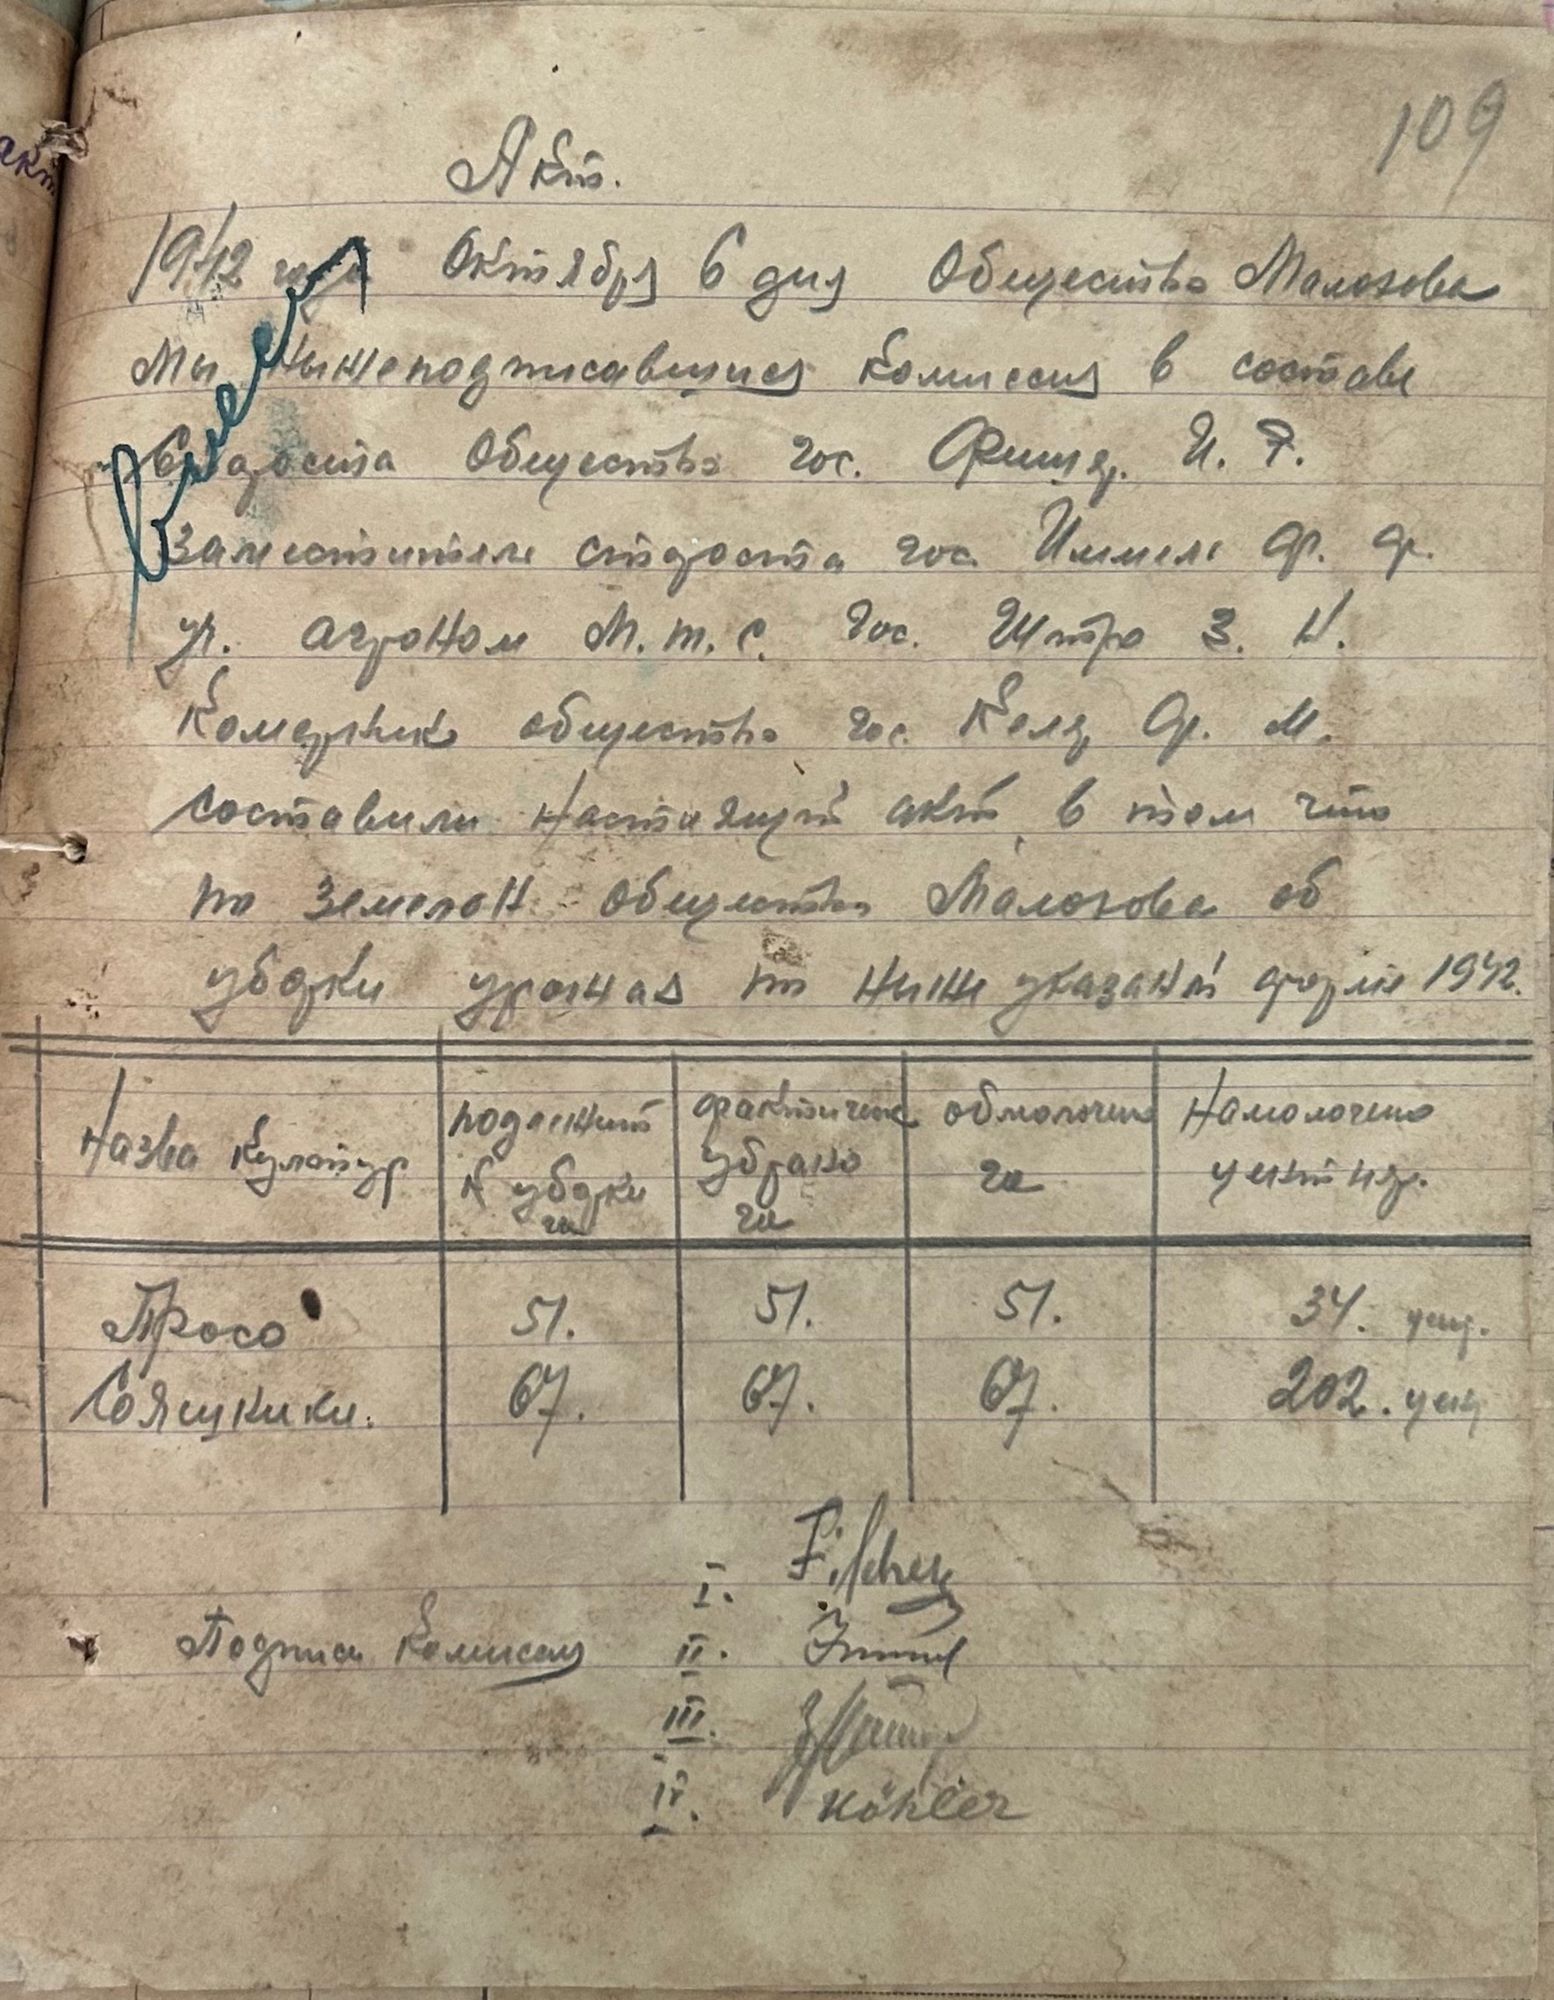 109
Акт.
1942 года Октября 6 дня Общество Малозова
Мы нижеподписавшиися комиссия в составе
Староста Общества гос. Фишер. И. Ф.
Заместителе староста гос. Иммель Ф. Ф.
уч. агроном М.Т.С. гос. Штро З. Н.
Комерник общества гос. Келер Ф. М.
составили настоящий акт в том что
по земелон общества Малозова об
уборки урожая по ниже указаной форме 1942.
Назва культур
подлежит к уборки га
фактическ убрано га
обмолочено га
Намолочено центнер.
Просо 51. 51. 51. 34. цен.
Соящники. 67. 67. 67. 202. цен
Подписи комиссии
I. Fischer
II. Immel
III.
IV. Köhler